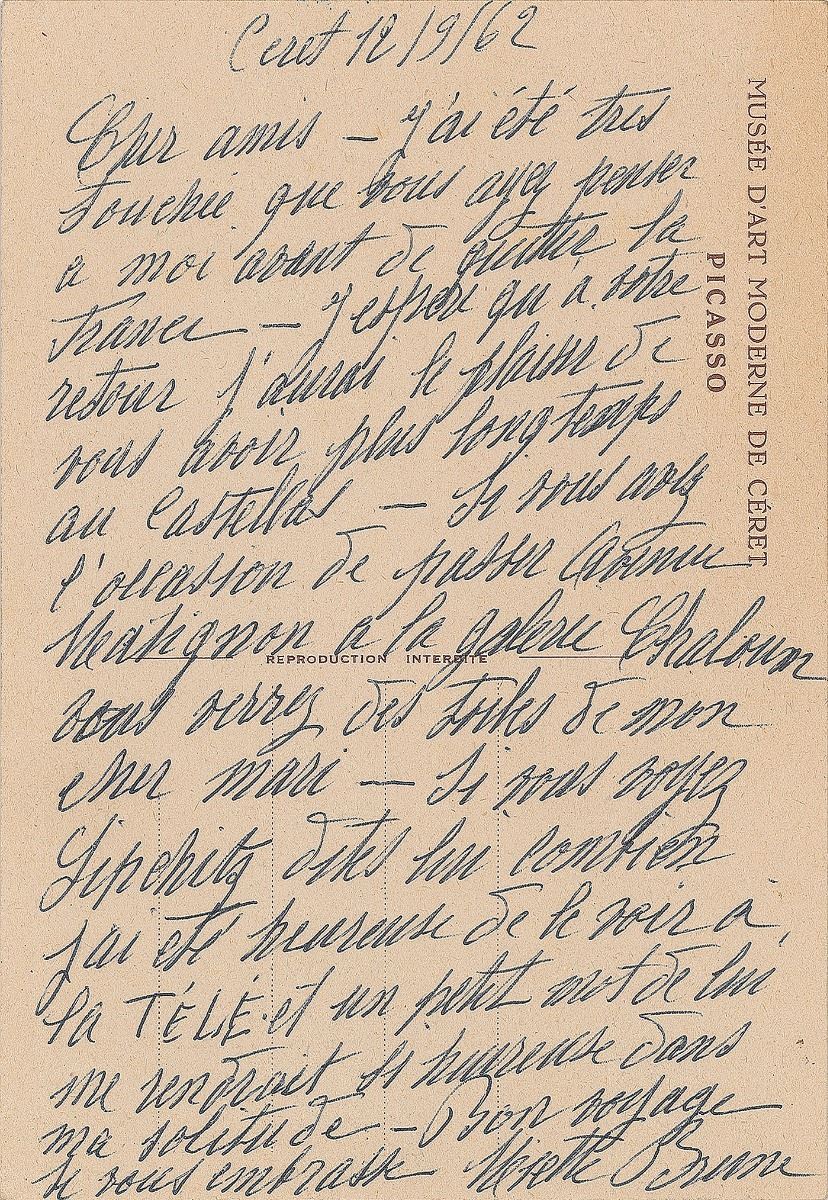 Ceret 12/9/62
Cher amis — J'ai été tres
touchée que vous ayez penser
a moi avant de quitter la
France — J'espere qu'a votre
retour j'aurai le plaisir de
vous avoir plus longtemps
au Castellas — Si vous avez
l'occasion de passer Avenue
Matignon a la galerie Chaloum
vous verrez des toiles de mon
cher mari — Si vous voyez
Lipchitz dites lui combien
j'ai été heureuse de le voir à
la TÉLÉ et un petit mot de lui
me rendrait si heureuse dans
ma solitude — Bon voyage
Je vous embrasse Miette Brune
MUSÉE D'ART MODERNE DE CÉRET
PICASSO
REPRODUCTION INTERDITE